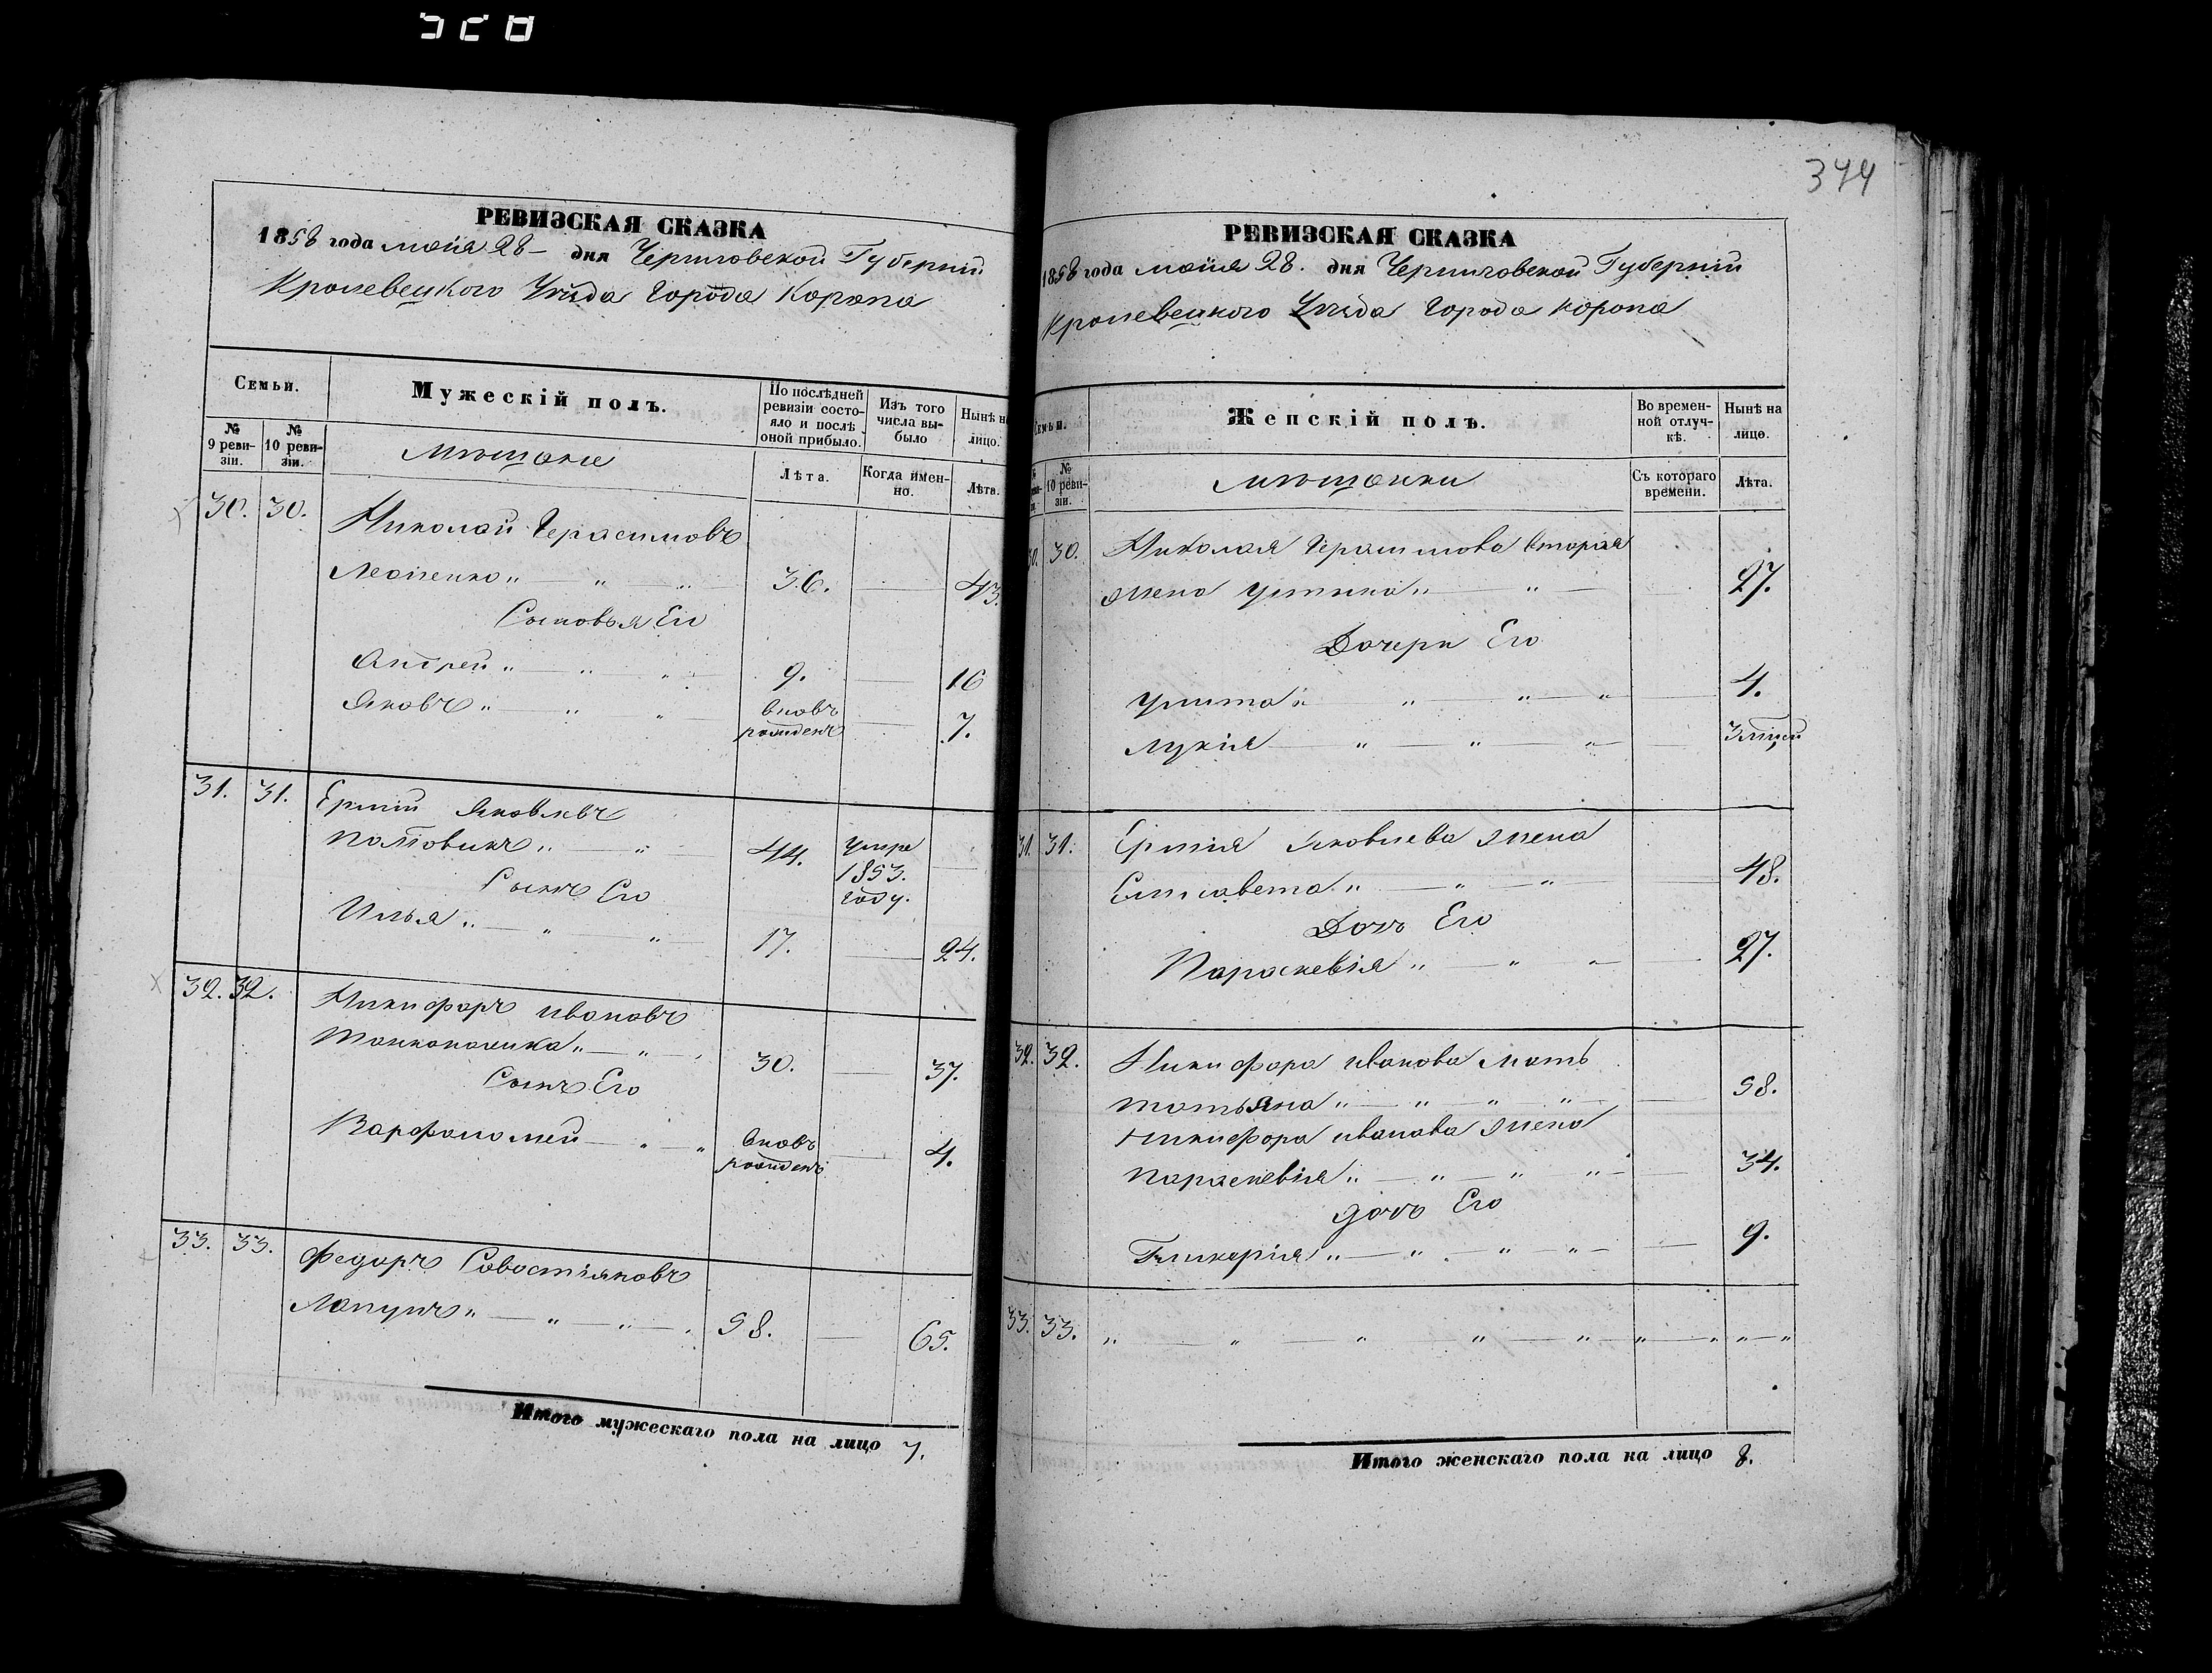 РЕВИЗСКАЯ СКАЗКА
1858 года маія 28 – дня Черниговской Губерніи
Кролевецкого Уѣзда Города Коропа
Семьи.
Мужескій полъ.
По послѣдней ревизіи состояло и послѣ оной прибыло.
Изъ того числа выбыло
Нынѣ на лицо.
№ 9 ревизіи.
№ 10 ревизіи.
Мѣщане
Лѣта.
Когда именно.
Лѣта.
30. 30. Николай Герасимовъ
36. 43.
Сыновья Его
Андрей 9. 16
Яковъ вновь рожденъ 7.
31. 31. Ермій Яковлевъ
44. умре 1853. году.
Сынъ Его
Илья 17. 24.
32. 32. Никифоръ Ивановъ
30. 37.
Сынъ Его
Варфоломей вновь рожденъ 4.
33. 33. Федоръ Савостіяновъ
Лапунъ 58. 65.
Итого мужескаго пола на лицо 7.
344
РЕВИЗСКАЯ СКАЗКА
1858 года маія 28. дня Черниговской Губерніи
Кролевецкого Уѣзда Города Коропа
Семьи.
Женскій полъ.
Во временной отлучкѣ.
Нынѣ на лицо.
№ 10 ревизіи.
мѣщанки
Съ котораго времени.
Лѣта.
30. 30. Николая Герасимова вторая
жена Устина 27.
Дочери Его
Улита 4.
Лукія
31. 31. Ермія Яковлева жена
Елисавета 48.
Дочь Его
Параскевія 27.
32. 32. Никифора Иванова мать
Татьяна 58.
Никифора Иванова жена
Параскевія 34.
Дочь Его
Гликерія 9.
33. 33.
Итого женскаго пола на лицо 8.